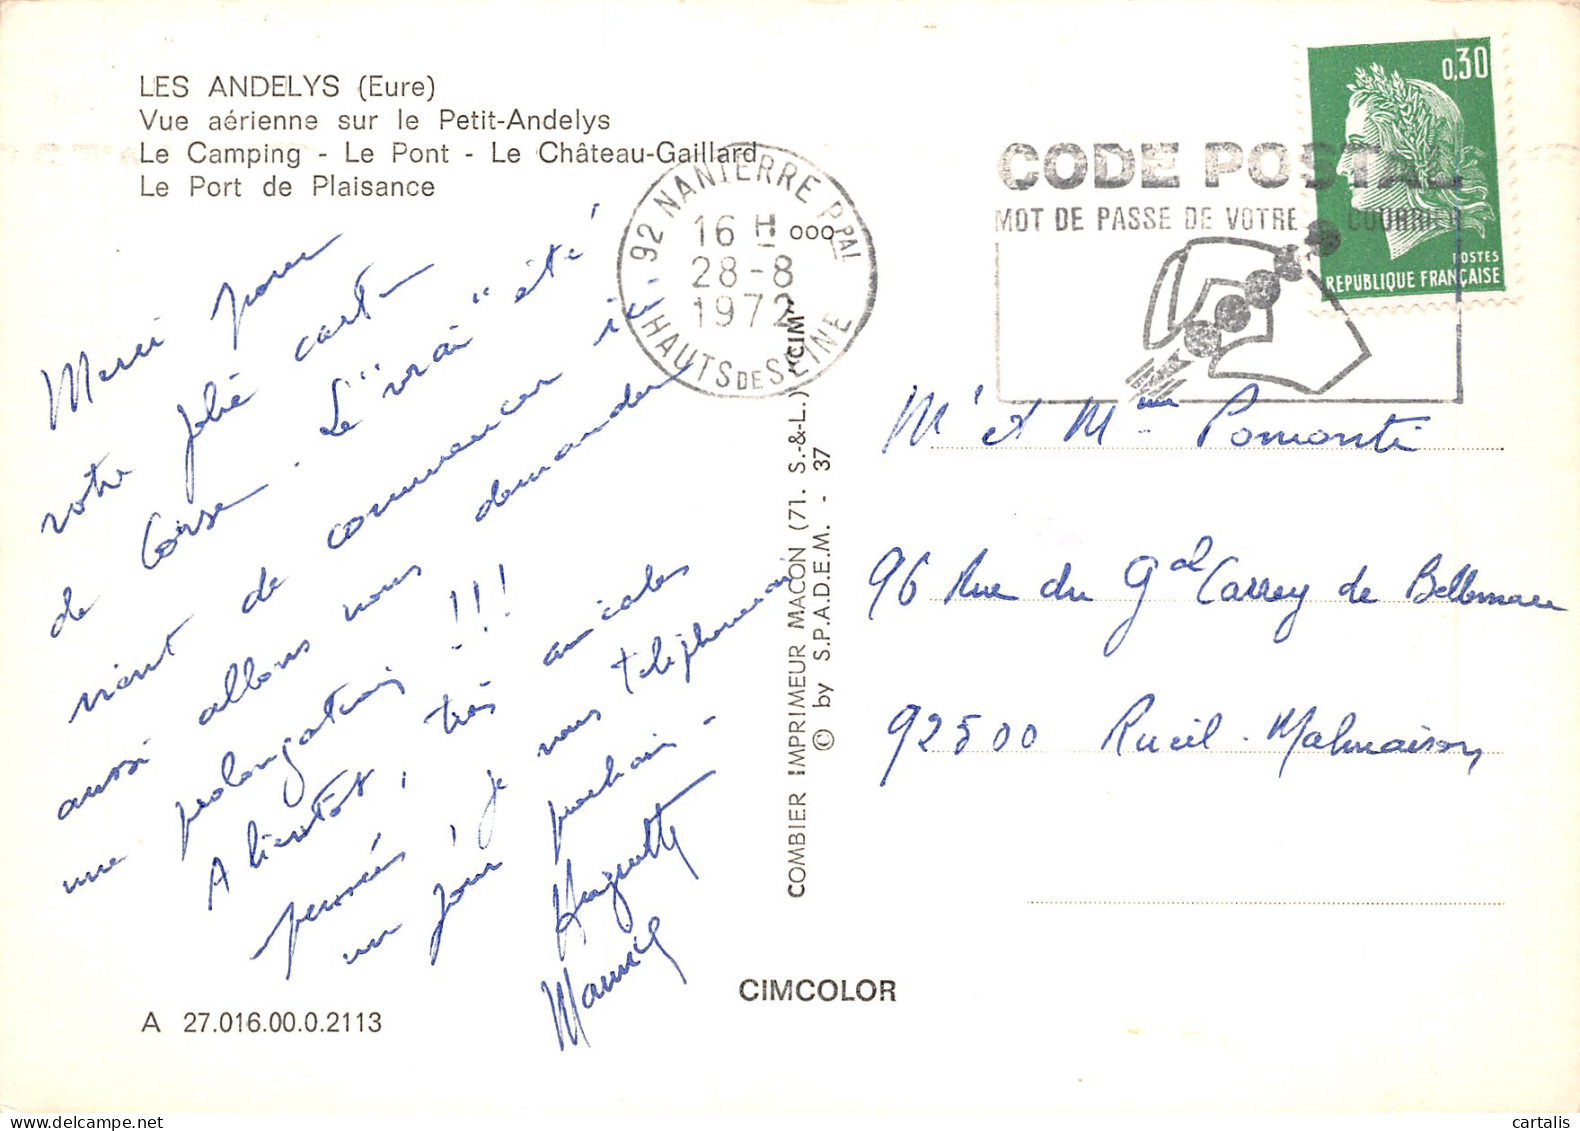 LES ANDELYS (Eure)
Vue aérienne sur le Petit-Andelys
Le Camping - Le Pont - Le Château-Gaillard
Le Port de Plaisance
Merci pour
votre jolie carte
de Corse. Le "vrai" été
vient de commencer ici
aussi allons nous demander
une prolongation !!!
A bientôt, très amicales
pensées, je vous téléphonerai
un jour prochain -
Huguette
Maurice
A 27.016.00.0.2113
CIMCOLOR
COMBIER IMPRIMEUR MACON (71. S.-&-L.) "CIM"
© by S.P.A.D.E.M. - 37
92 NANTERRE PPAL
16 H 000
28-8
1972
HAUTS DE SEINE
CODE POSTAL
MOT DE PASSE DE VOTRE COURRIER
0,30
POSTES
REPUBLIQUE FRANÇAISE
Mr et Mme Pomonti
96 Rue du Gal Carrey de Bellemare
92500 Rueil-Malmaison
cartalis